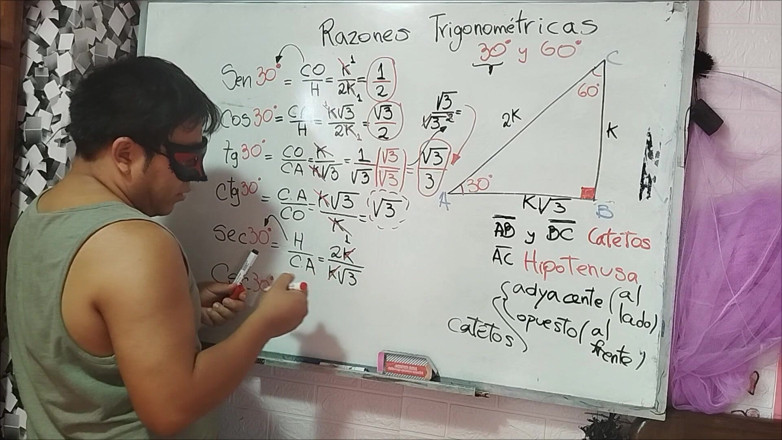 Razones Trigonométricas
30° y 60°
Sen 30° = CO/H = K/2K = 1/2
Cos 30° = CA/H = K√3/2K = √3/2
tg 30° = CO/CA = K/K√3 = 1/√3 (√3/√3) = √3/3
√3/√3² =
Ctg 30° = C.A/CO = K√3/K = √3
Sec 30° = H/CA = 2K/K√3
Csc 30°
C
60°
2K
K
A
30°
K√3
B
AB y BC Catetos
AC Hipotenusa
Catetos { adyacente (al lado)
opuesto (al frente)